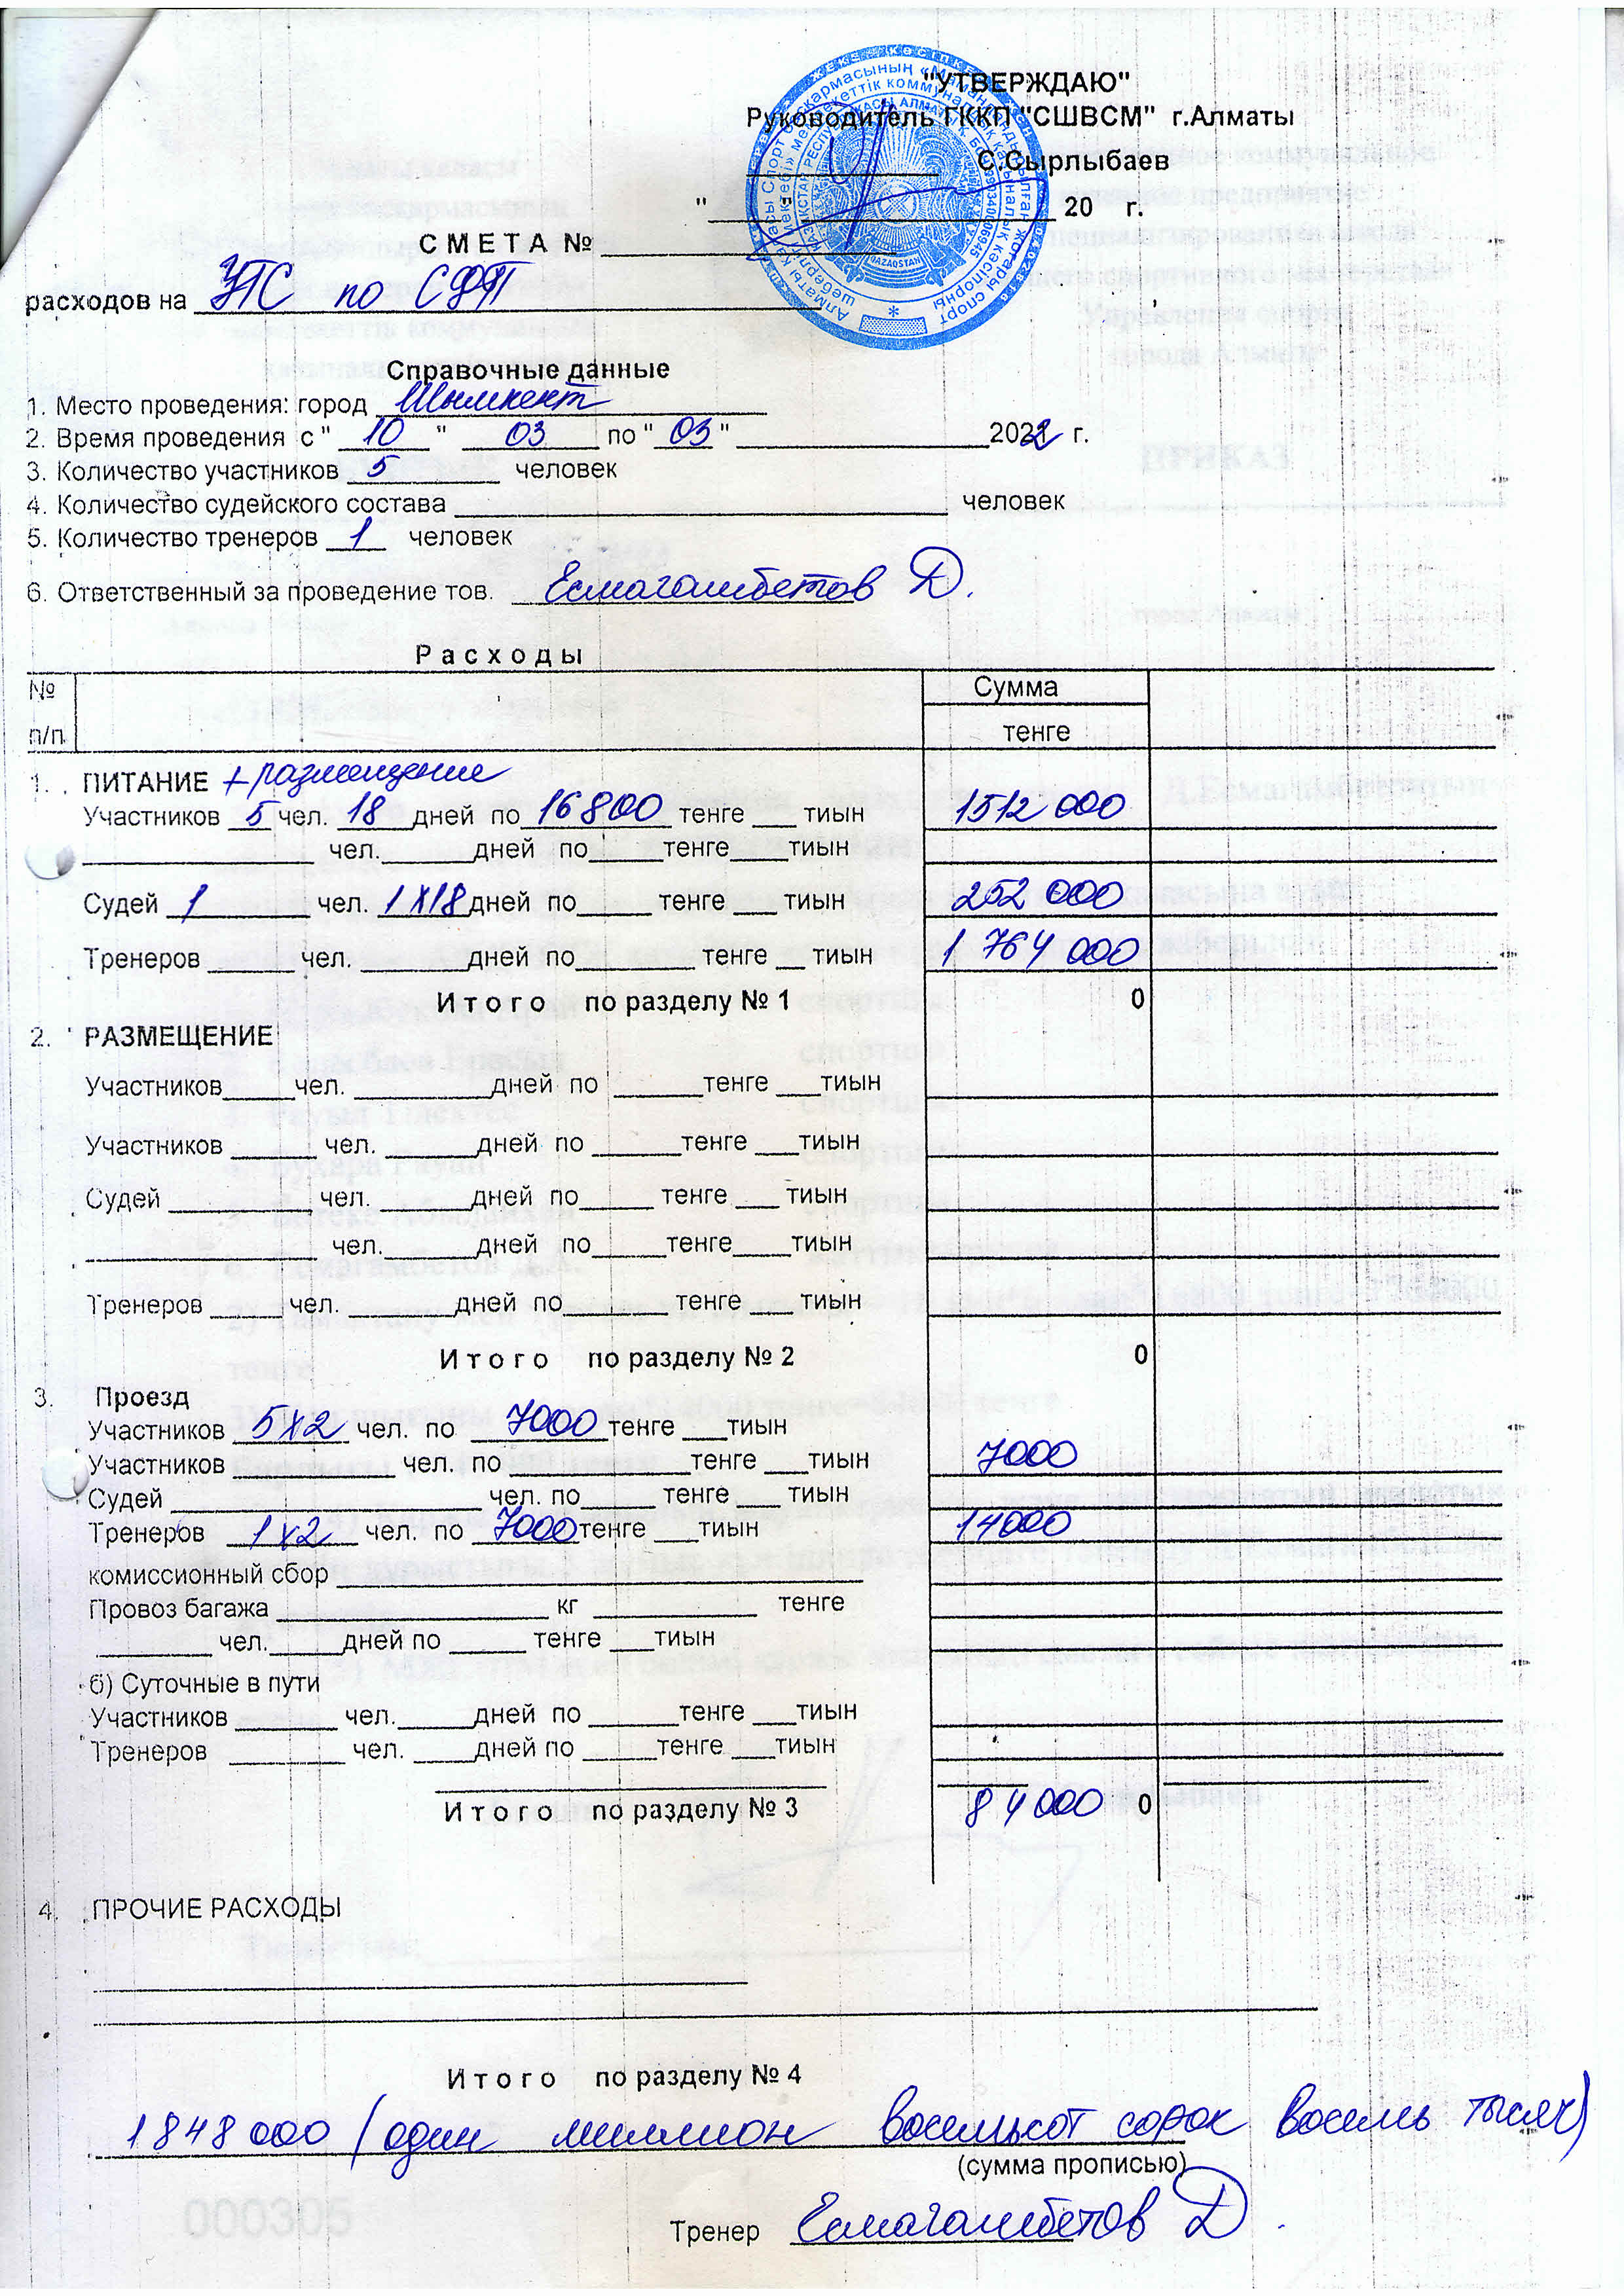 "УТВЕРЖДАЮ"
Руководитель ГККП "СШВСМ" г.Алматы
____________ С.Сырлыбаев
"____" ____________ 20 г.
С М Е Т А № ____________
расходов на УТС по СФП
Справочные данные
1. Место проведения: город Шымкент
2. Время проведения с " 10 " 03 по " 03 " ____________ 2022 г.
3. Количество участников 5 человек
4. Количество судейского состава ____________ человек
5. Количество тренеров 1 человек
6. Ответственный за проведение тов. Есмагамбетов Д.
Р а с х о д ы
№ п/п Сумма тенге
1. ПИТАНИЕ + размещение
Участников 5 чел. 18 дней по 16800 тенге ___ тиын 1512 000
____________ чел.______дней по_____тенге____тиын
Судей 1 чел. 1х18 дней по_____ тенге ___ тиын 252 000
Тренеров ______ чел. _______дней по________ тенге __ тиын 1 764 000
И т о г о по разделу № 1 0
2. РАЗМЕЩЕНИЕ
Участников_____чел. _________дней по ______тенге ___тиын
Участников ______ чел. ______дней по ______тенге ___тиын
Судей __________ чел. ______дней по_____ тенге ___ тиын
____________ чел.______дней по_____тенге____тиын
Тренеров _____ чел. _______дней по_______ тенге ___ тиын
И т о г о по разделу № 2 0
3. Проезд
Участников 5х2 чел. по 7000 тенге ___тиын
Участников ___________ чел. по ____________тенге ___тиын 7000
Судей _____________________ чел. по_____ тенге ___ тиын
Тренеров 1х2 чел. по 7000 тенге ___тиын 14000
комиссионный сбор ____________
Провоз багажа __________________ кг ___________ тенге
________ чел._____дней по _____ тенге ___тиын
б) Суточные в пути
Участников _______ чел._____дней по ______тенге ___тиын
Тренеров ________ чел. ____дней по _____тенге ___тиын
И т о г о по разделу № 3 84 000 0
4. ПРОЧИЕ РАСХОДЫ
И т о г о по разделу № 4
1848 000 (один миллион восемьсот сорок восемь тысяч)
(сумма прописью)
Тренер Есмагамбетов Д.
000305